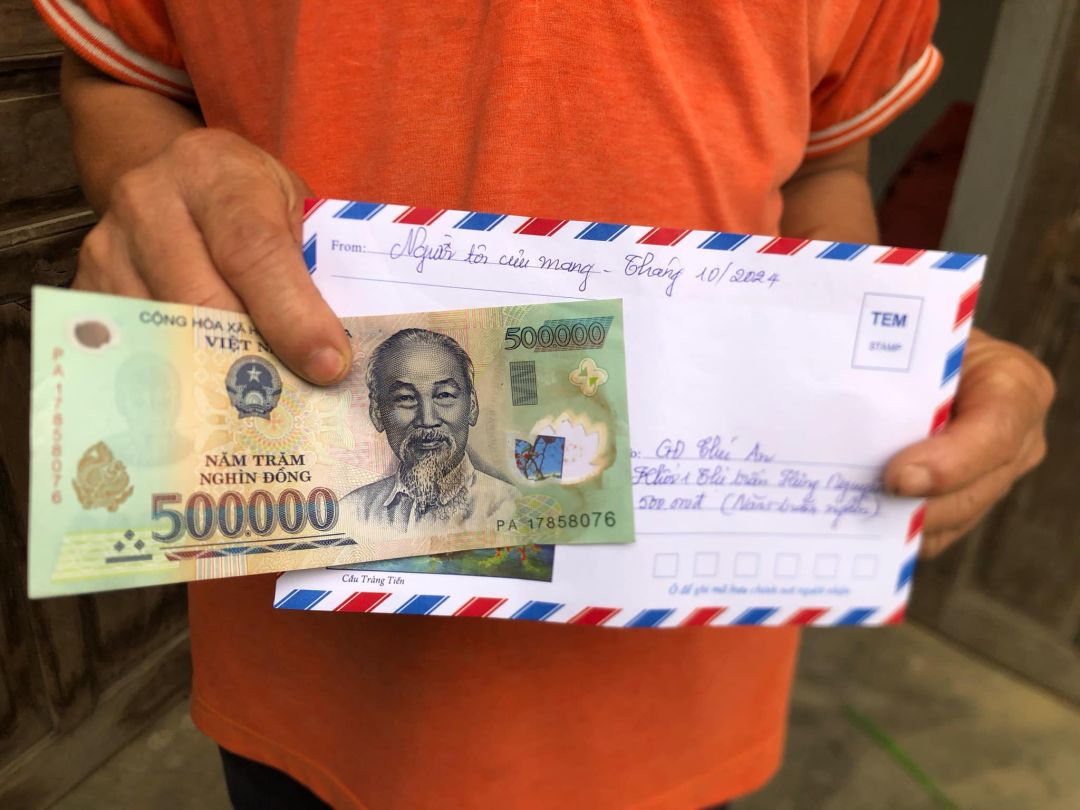 From: Người tôi cưu mang - Tháng 10/2024
TEM
STAMP
GĐ Thú An
Khối 1 Thị trấn Hưng Nguyên
500.000đ (Năm trăm nghìn)
Ô để ghi mã bưu chính nơi người nhận
Cầu Tràng Tiền
CỘNG HÒA XÃ
VIỆT
500.000
PA 17858076
NĂM TRĂM
NGHÌN ĐỒNG
500.000
PA 17858076